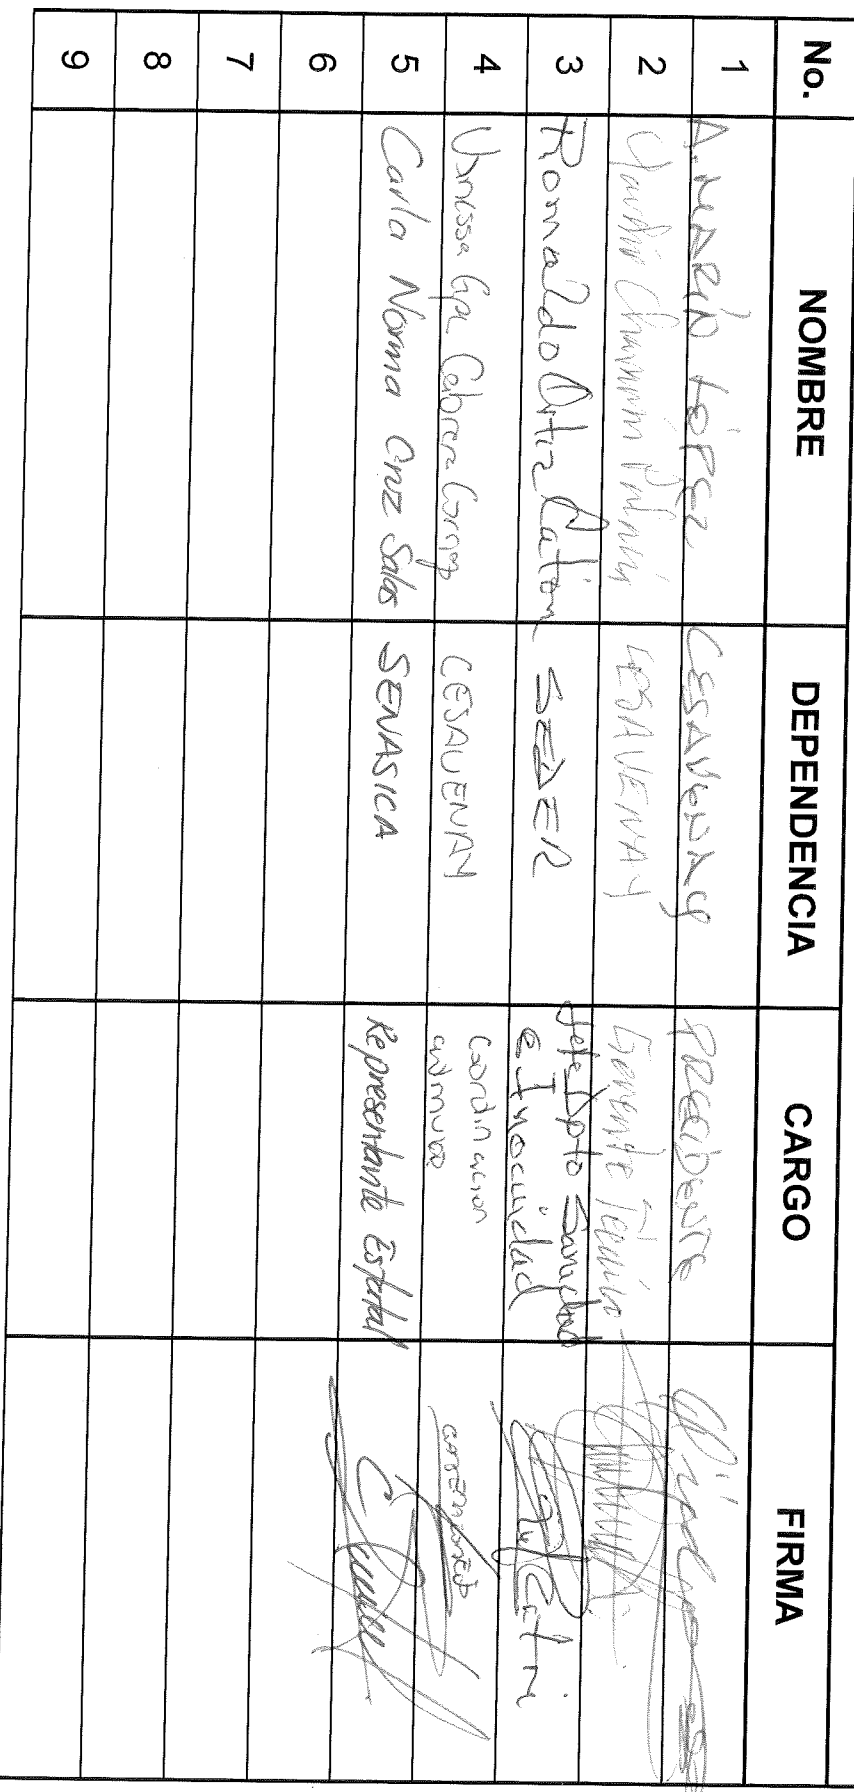 No. NOMBRE DEPENDENCIA CARGO FIRMA
1 A. MARIO LÓPEZ CESAVENAY PRECIDENTE
2 CESAVENAY Gerente Técnico
3 Romualdo Ortiz Catton SEDER Jefe Dpto Sanidad
e Inocuidad
4 Vanessa Gpe Cabrera CESAVENAY Coordinacion
admva
5 Carla Norma Cruz Salas SENASICA Representante Estatal
6
7
8
9